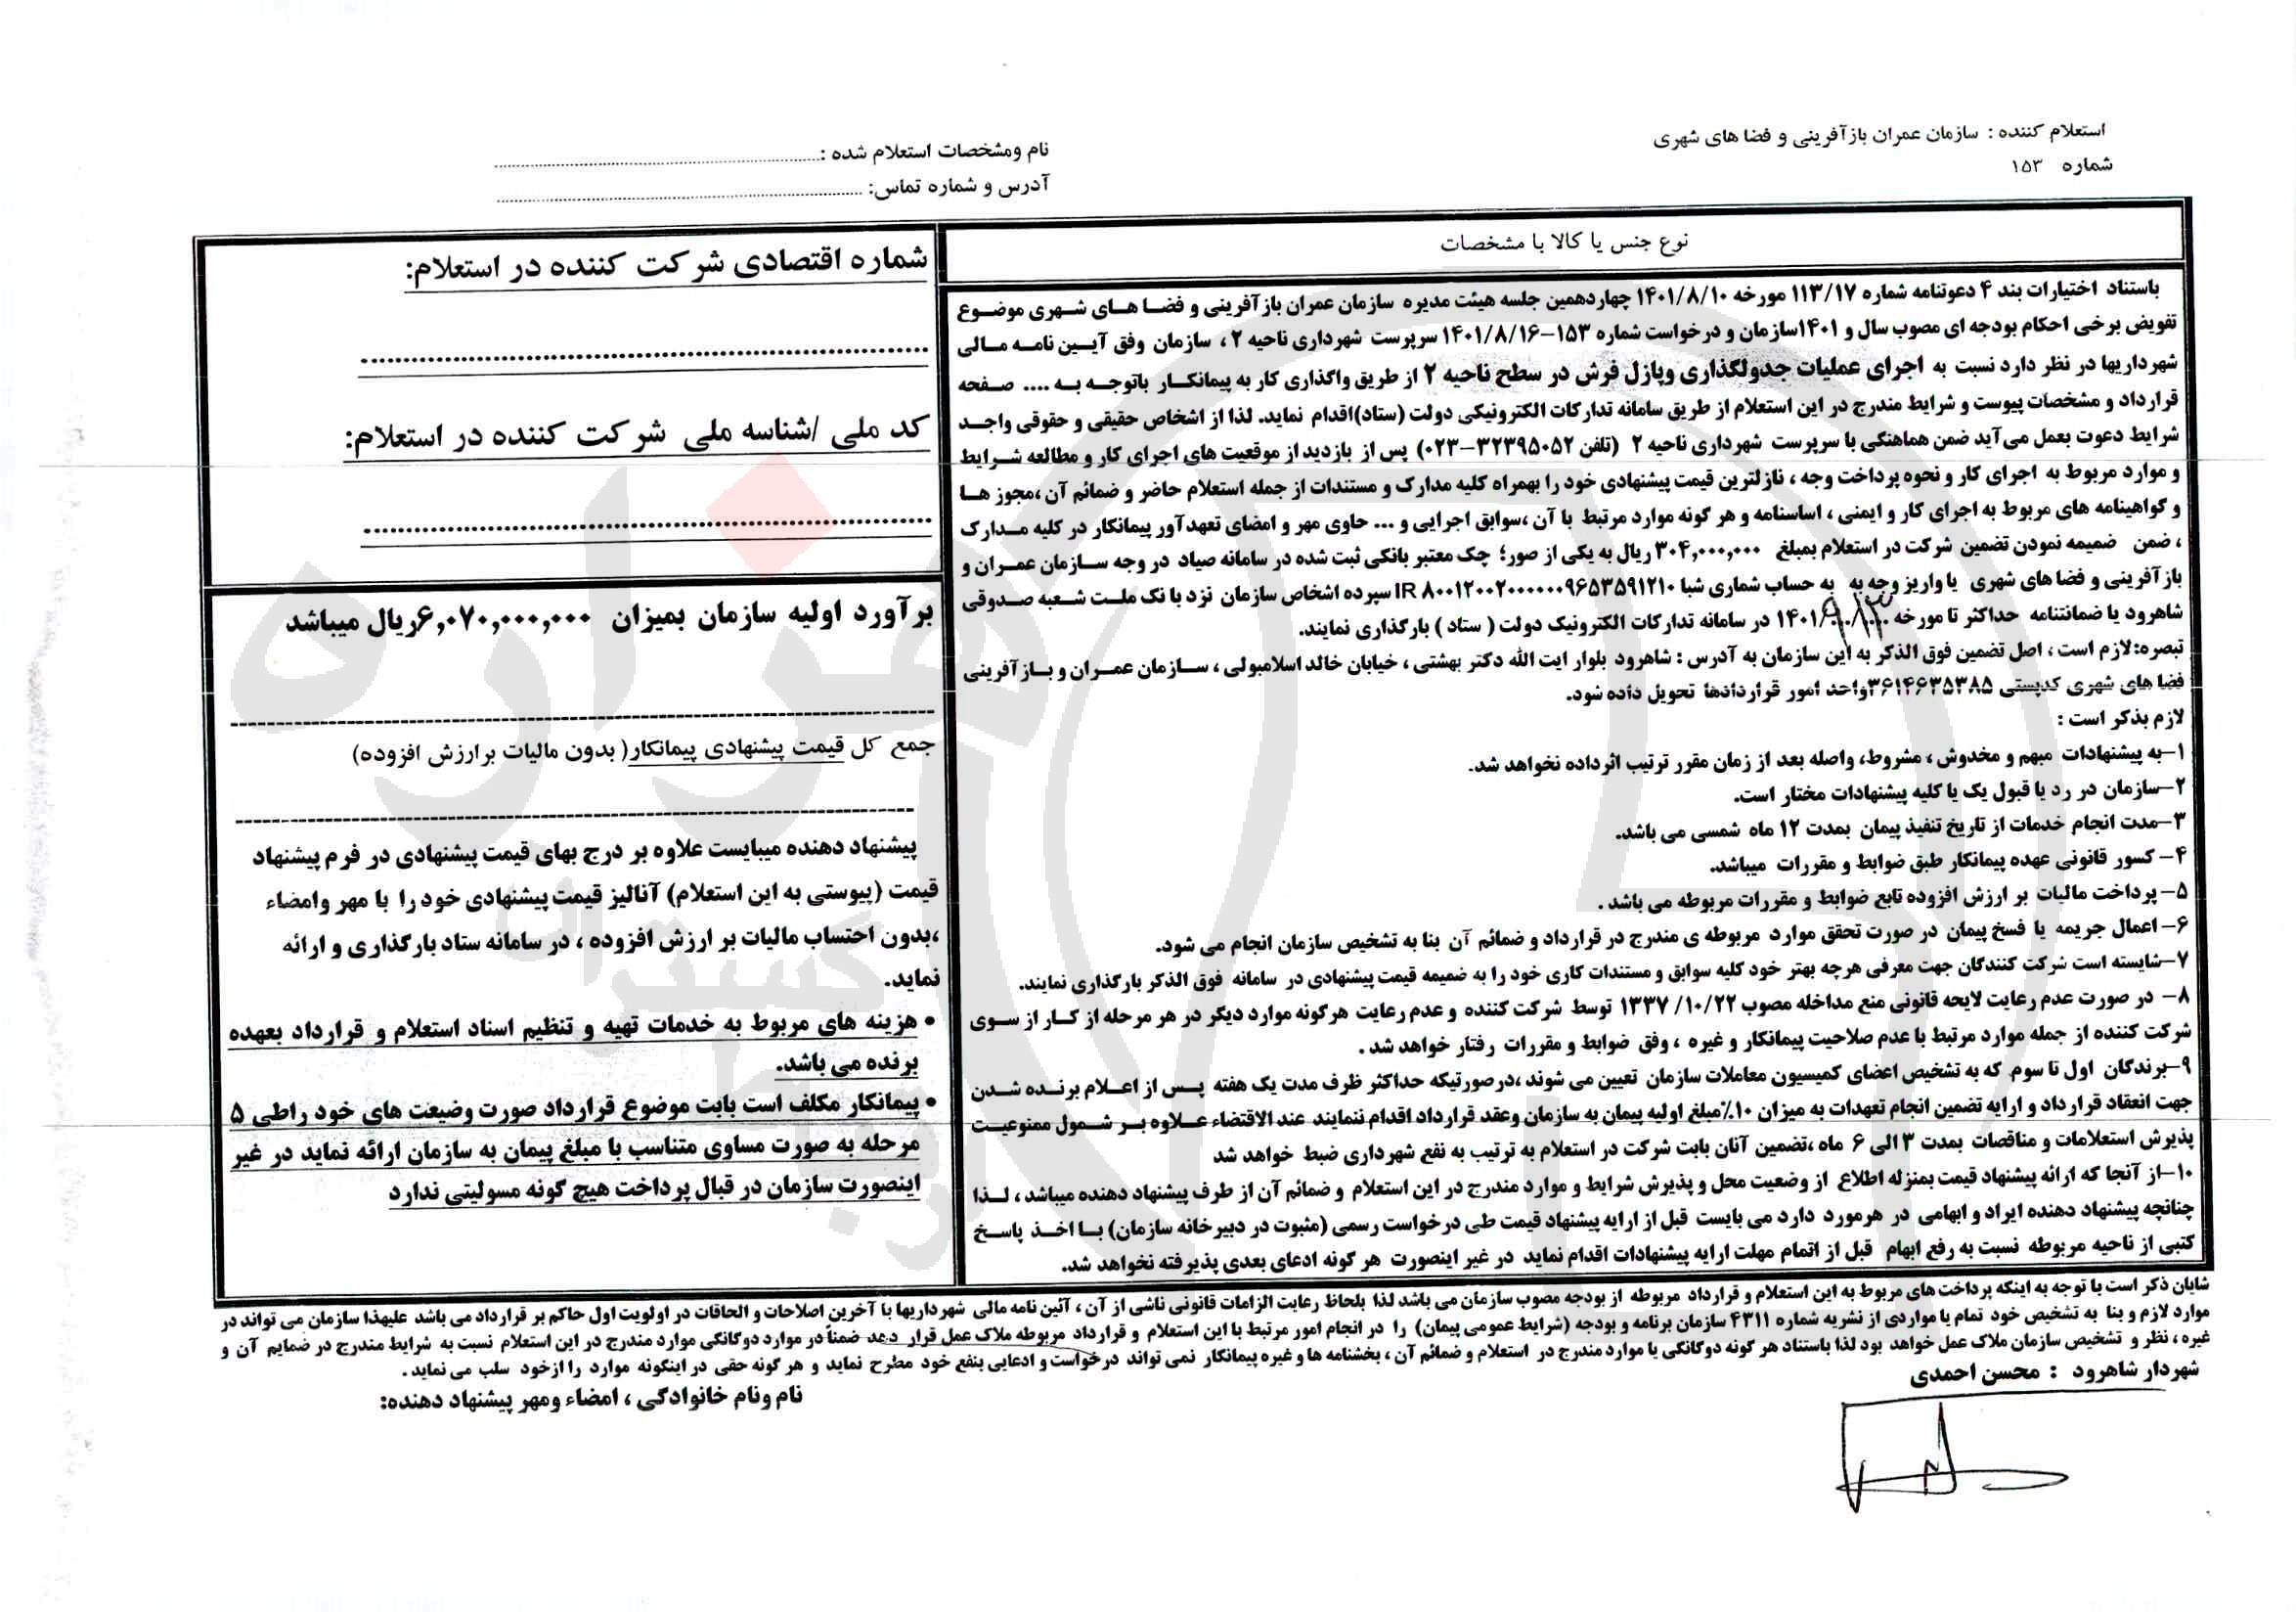 استعلام کننده : سازمان عمران بازآفرینی و فضا های شهری
شماره ۱۵۳
نام ومشخصات استعلام شده :
آدرس و شماره تماس:
نوع جنس یا کالا با مشخصات
باستناد اختیارات بند ۴ دعوتنامه شماره ۱۱۳/۱۷ مورخه ۱۴۰۱/۸/۱۰ چهاردهمین جلسه هیئت مدیره سازمان عمران بازآفرینی و فضا های شهری موضوع
تفویض برخی احکام بودجه ای مصوب سال و ۱۴۰۱سازمان و درخواست شماره ۱۵۳–۱۴۰۱/۸/۱۶ سرپرست شهرداری ناحیه ۲ ، سازمان وفق آیین نامه مالی
شهرداریها در نظر دارد نسبت به اجرای عملیات جدولگذاری وپازل فرش در سطح ناحیه ۲ از طریق واگذاری کار به پیمانکار باتوجه به .... صفحه
قرارداد و مشخصات پیوست و شرایط مندرج در این استعلام از طریق سامانه تدارکات الکترونیکی دولت (ستاد)اقدام نماید. لذا از اشخاص حقیقی و حقوقی واجد
شرایط دعوت بعمل می آید ضمن هماهنگی با سرپرست شهرداری ناحیه ۲ (تلفن ۳۲۳۹۵۰۵۲–۰۲۳) پس از بازدید از موقعیت های اجرای کار و مطالعه شرایط
و موارد مربوط به اجرای کار و نحوه پرداخت وجه ، نازلترین قیمت پیشنهادی خود را بهمراه کلیه مدارک و مستندات از جمله استعلام حاضر و ضمائم آن ،مجوز ها
و گواهینامه های مربوط به اجرای کار و ایمنی ، اساسنامه و هر گونه موارد مرتبط با آن ،سوابق اجرایی و ... حاوی مهر و امضای تعهدآور پیمانکار در کلیه مدارک
، ضمن ضمیمه نمودن تضمین شرکت در استعلام بمبلغ ۳۰۴,۰۰۰,۰۰۰ ریال به یکی از صور؛ چک معتبر بانکی ثبت شده در سامانه صیاد در وجه سازمان عمران و
بازآفرینی و فضا های شهری یا واریز وجه به به حساب شماری شبا IR ۸۰۰۱۲۰۰۲۰۰۰۰۰۰۹۶۵۳۵۹۱۲۱۰ سپرده اشخاص سازمان نزد بانک ملت شعبه صدوقی
شاهرود یا ضمانتنامه حداکثر تا مورخه ۱۴۰۱/ در سامانه تدارکات الکترونیک دولت ( ستاد ) بارگذاری نمایند.
تبصره:لازم است ، اصل تضمین فوق الذکر به این سازمان به آدرس : شاهرود بلوار ایت الله دکتر بهشتی ، خیابان خالد اسلامبولی ، سازمان عمران و بازآفرینی
فضا های شهری کدپستی ۳۶۱۴۶۳۵۳۸۵واحد امور قراردادها تحویل داده شود.
لازم بذکر است :
۱–به پیشنهادات مبهم و مخدوش ، مشروط، واصله بعد از زمان مقرر ترتیب اثرداده نخواهد شد.
۲–سازمان در رد یا قبول یک یا کلیه پیشنهادات مختار است.
۳–مدت انجام خدمات از تاریخ تنفیذ پیمان بمدت ۱۲ ماه شمسی می باشد.
۴– کسور قانونی عهده پیمانکار طبق ضوابط و مقررات میباشد.
۵– پرداخت مالیات بر ارزش افزوده تابع ضوابط و مقررات مربوطه می باشد .
۶– اعمال جریمه یا فسخ پیمان در صورت تحقق موارد مربوطه ی مندرج در قرارداد و ضمائم آن بنا به تشخیص سازمان انجام می شود.
۷–شایسته است شرکت کنندگان جهت معرفی هرچه بهتر خود کلیه سوابق و مستندات کاری خود را به ضمیمه قیمت پیشنهادی در سامانه فوق الذکر بارگذاری نمایند.
۸– در صورت عدم رعایت لایحه قانونی منع مداخله مصوب ۱۳۳۷/۱۰/۲۲ توسط شرکت کننده و عدم رعایت هرگونه موارد دیگر در هر مرحله از کار از سوی
شرکت کننده از جمله موارد مرتبط با عدم صلاحیت پیمانکار و غیره ، وفق ضوابط و مقررات رفتار خواهد شد .
۹–برندگان اول تا سوم که به تشخیص اعضای کمیسیون معاملات سازمان تعیین می شوند ،درصورتیکه حداکثر ظرف مدت یک هفته پس از اعلام برنده شدن
جهت انعقاد قرارداد و ارایه تضمین انجام تعهدات به میزان ۱۰٪مبلغ اولیه پیمان به سازمان وعقد قرارداد اقدام ننمایند عند الاقتضاء علاوه بر شمول ممنوعیت
پذیرش استعلامات و مناقصات بمدت ۳ الی ۶ ماه ،تضمین آنان بابت شرکت در استعلام به ترتیب به نفع شهرداری ضبط خواهد شد
۱۰–از آنجا که ارائه پیشنهاد قیمت بمنزله اطلاع از وضعیت محل و پذیرش شرایط و موارد مندرج در این استعلام و ضمائم آن از طرف پیشنهاد دهنده میباشد ، لذا
چنانچه پیشنهاد دهنده ایراد و ابهامی در هرمورد دارد می بایست قبل از ارایه پیشنهاد قیمت طی درخواست رسمی (مثبوت در دبیرخانه سازمان) با اخذ پاسخ
کتبی از ناحیه مربوطه نسبت به رفع ابهام قبل از اتمام مهلت ارایه پیشنهادات اقدام نماید در غیر اینصورت هر گونه ادعای بعدی پذیرفته نخواهد شد.
شماره اقتصادی شرکت کننده در استعلام:
کد ملی /شناسه ملی شرکت کننده در استعلام:
برآورد اولیه سازمان بمیزان ۶,۰۷۰,۰۰۰,۰۰۰ریال میباشد
جمع کل قیمت پیشنهادی پیمانکار( بدون مالیات برارزش افزوده)
پیشنهاد دهنده میبایست علاوه بر درج بهای قیمت پیشنهادی در فرم پیشنهاد
قیمت (پیوستی به این استعلام) آنالیز قیمت پیشنهادی خود را با مهر وامضاء
،بدون احتساب مالیات بر ارزش افزوده ، در سامانه ستاد بارگذاری و ارائه
نماید.
• هزینه های مربوط به خدمات تهیه و تنظیم اسناد استعلام و قرارداد بعهده
برنده می باشد.
• پیمانکار مکلف است بابت موضوع قرارداد صورت وضیعت های خود راطی ۵
مرحله به صورت مساوی متناسب با مبلغ پیمان به سازمان ارائه نماید در غیر
اینصورت سازمان در قبال پرداخت هیچ گونه مسولیتی ندارد
شایان ذکر است با توجه به اینکه پرداخت های مربوط به این استعلام و قرارداد مربوطه از بودجه مصوب سازمان می باشد لذا بلحاظ رعایت الزامات قانونی ناشی از آن ، آئین نامه مالی شهرداریها با آخرین اصلاحات و الحاقات در اولویت اول حاکم بر قرارداد می باشد علیهذا سازمان می تواند در
موارد لازم و بنا به تشخیص خود تمام یا مواردی از نشریه شماره ۴۳۱۱ سازمان برنامه و بودجه (شرایط عمومی پیمان) را در انجام امور مرتبط با این استعلام و قرارداد مربوطه ملاک عمل قرار دهد ضمناً در موارد دوگانگی موارد مندرج در این استعلام نسبت به شرایط مندرج در ضمایم آن و
غیره، نظر و تشخیص سازمان ملاک عمل خواهد بود لذا باستناد هر گونه دوگانگی یا موارد مندرج در استعلام و ضمائم آن ، بخشنامه ها و غیره پیمانکار نمی تواند درخواست و ادعایی بنفع خود مطرح نماید و هر گونه حقی در اینگونه موارد را ازخود سلب می نماید .
شهردار شاهرود : محسن احمدی
نام ونام خانوادگی ، امضاء ومهر پیشنهاد دهنده:
هزاره